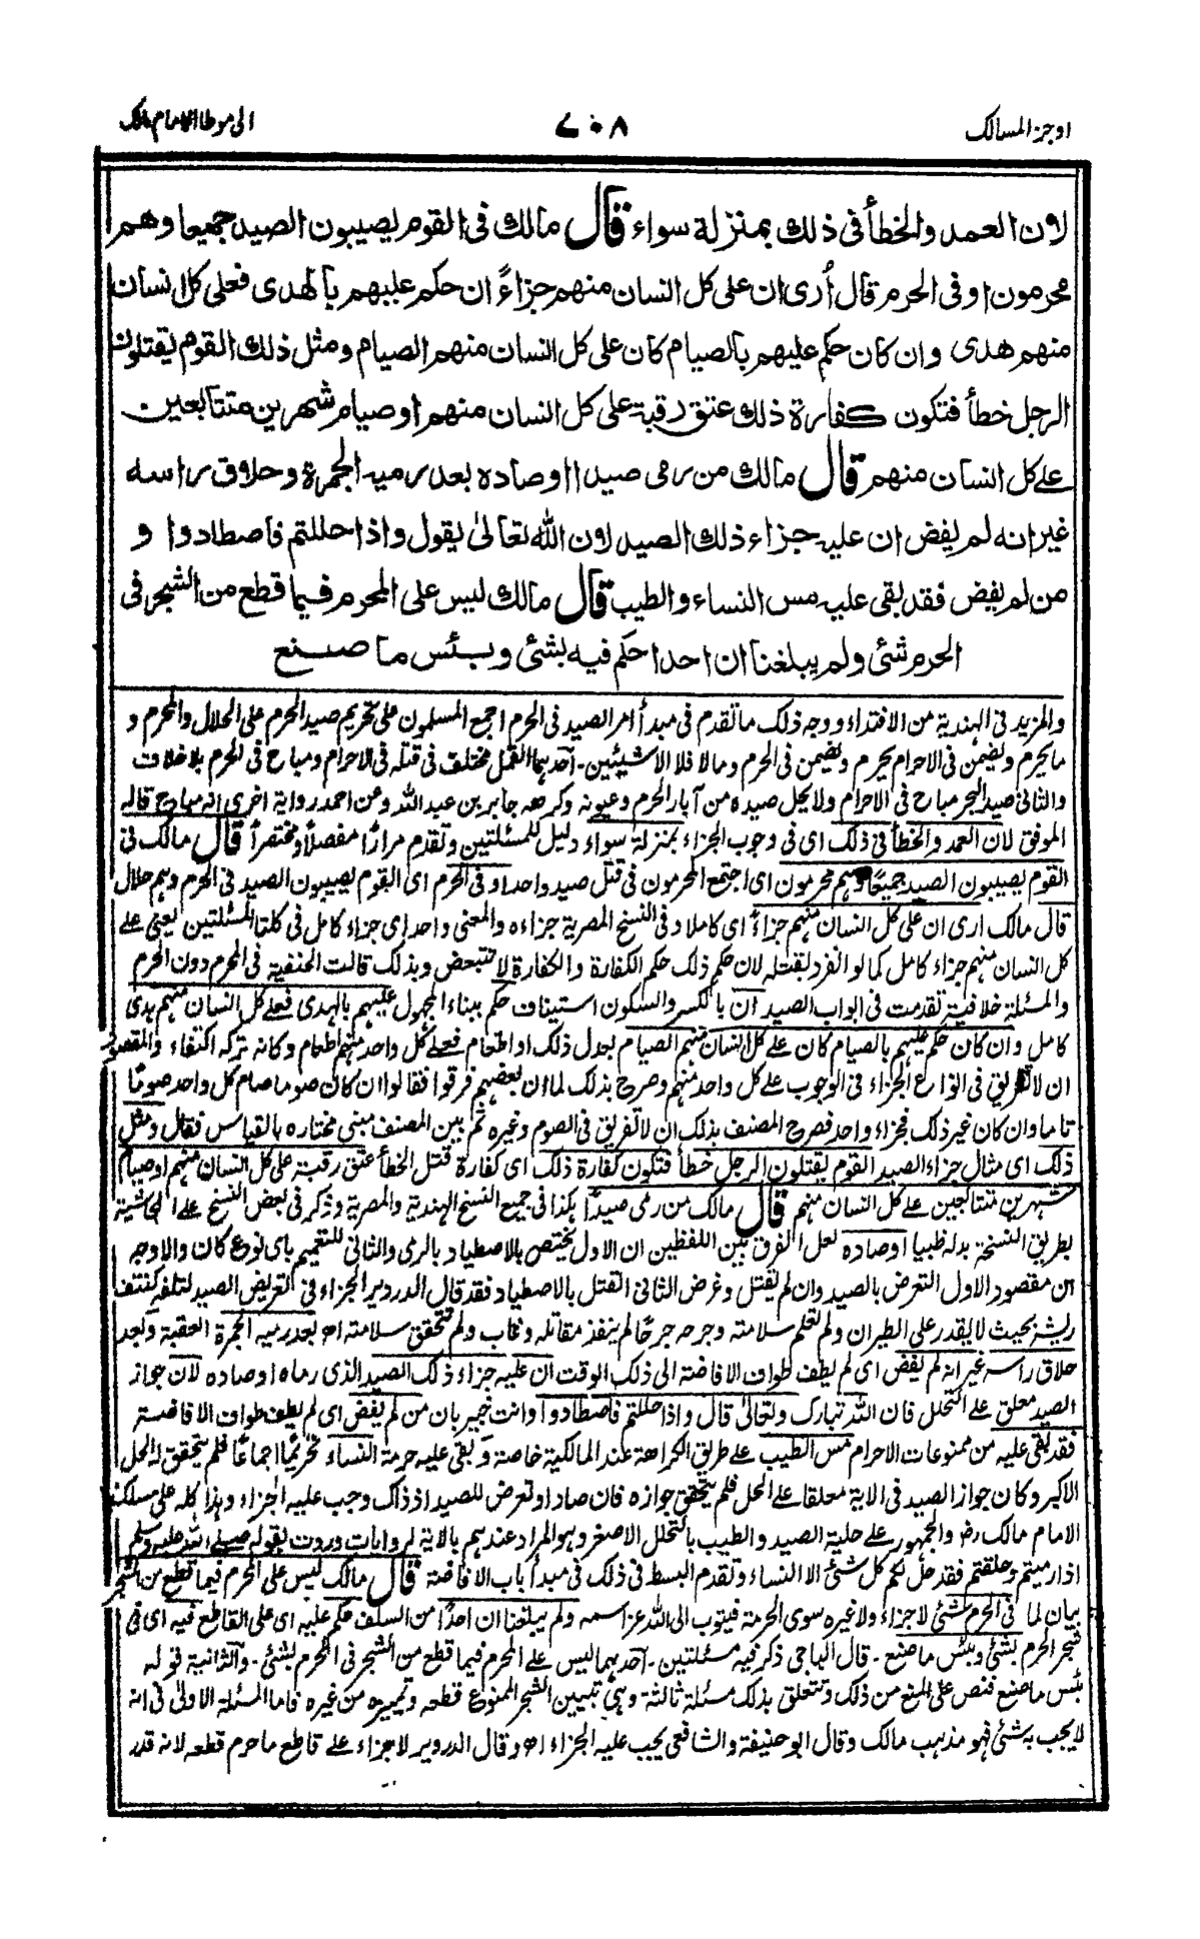 اوجز المسالك
٧٠٨
الى موطا الامام مالك
لان العمد والخطأ فى ذلك بمنزلة سواء قال مالك فى القوم يصيبون الصيد جميعا وهم
محرمون او فى الحرم قال أرى ان على كل انسان منهم جزاءً ان حكم عليهم بالهدى فعلى كل انسان
منهم هدى وان كان حكم عليهم بالصيام كان على كل انسان منهم الصيام ومثل ذلك القوم يقتلون
الرجل خطأ فتكون كفارة ذلك عتق رقبة على كل انسان منهم او صيام شهرين متتابعين
على كل انسان منهم قال مالك من رمى صيدا او صاده بعد رميه الجمرة وحلاق راسه
غير انه لم يفض ان عليه جزاء ذلك الصيد لان الله تعالىٰ يقول واذا حللتم فاصطادوا و
من لم يفض فقد بقى عليه مس النساء والطيب قال مالك ليس على المحرم فيما قطع من الشجر فى
الحرم شئ ولم يبلغنا ان احدا حكم فيه بشئ وبئس ما صنع
والمزيد فى الهندية من الافتداء ووجه ذلك ما تقدم فى مبدأ امر الصيد فى الحرم اجمع المسلمون على تحريم صيد الحرم على الحلال والمحرم و
ما يحرم ويضمن فى الاحرام يحرم ويضمن فى الحرم وما لا فلا الا شيئين۔ احدهما القمل مختلف فى قتله فى الاحرام ومباح فى الحرم بلا خلاف
والثانى صيد البحر مباح فى الاحرام ولا يحل صيده من آبار الحرم وعيونه وكرهه جابر بن عبد الله وعن احمد رواية اخرى انه مباح قاله
الموفق لان العمد والخطأ فى ذلك اى فى وجوب الجزاء بمنزلة سواء دليل للمسئلتين وتقدم مرارًا مفصلًا ومختصرًا قال مالك فى
القوم يصيبون الصيد جميعًا وهم محرمون اى اجتمع المحرمون فى قتل صيد واحد او فى الحرم اى القوم يصيبون الصيد فى الحرم وهم حلال
قال مالك ارى ان على كل انسان منهم جزاءً اى كاملا وفى النسخ المصرية جزاءه والمعنى واحد اى جزاء كامل فى كلتا المسئلتين يعنى على
كل انسان منهم جزاء كامل كما لو انفرد بقتله لان حكم ذلك حكم الكفارة والكفارة لا تتبعض وبذلك قالت الحنفية فى المحرم دون الحرم
والمسئلة خلافية تقدمت فى ابواب الصيد ان بالكسر والسكون استيناف حكم ببناء المجهول عليهم بالهدى فعلى كل انسان منهم هدى
كامل وان كان حكم عليهم بالصيام كان على كل انسان منهم الصيام بعدل ذلك او اطعام فعلى كل واحد منهم اطعام وكانه تركه اكتفاء والمقصود
ان لا تفريق فى انواع الجزاء فى الوجوب على كل واحد منهم وصرح بذلك لما ان بعضهم فرقوا فقالوا ان كان صوما صام كل واحد صومًا
تاما وان كان غير ذلك فجزاء واحد فصرح المصنف بذلك ان لا تفريق فى الصوم وغيره ثم بين المصنف مبنى مختاره بالقياس فقال ومثل
ذلك اى مثال جزاء الصيد القوم يقتلون الرجل خطأ فتكون كفارة ذلك اى كفارة قتل الخطأ عتق رقبة على كل انسان منهم او صيام
شهرين متتابعين على كل انسان منهم قال مالك من رمى صيدًا هكذا فى جميع النسخ الهندية والمصرية وذكر فى بعض النسخ على الحاشية
بطريق النسخة بدله ظبيا او صاده لعل الفرق بين اللفظين ان الاول يختص بالاصطياد بالرمى والثانى للتعميم باى نوع كان والاوجه
ان مقصود الاول التعرض بالصيد وان لم يقتل وغرض الثانى القتل بالاصطياد فقد قال الدردير الجزاء فى التعريض الصيد لتلفه كنتف
ريشه بحيث لا يقدر على الطيران ولم تعلم سلامته وجرحه جرحًا لم ينفذ مقاتله وغاب ولم تتحقق سلامته اھ بعد رميه الجمرة العقبة وبعد
حلاق راسه غير انه لم يفض اى لم يطف طواف الافاضة الى ذلك الوقت ان عليه جزاء ذلك الصيد الذى رماه او صاده لان جواز
الصيد معلق على التحلل فان الله تبارك وتعالىٰ قال واذا حللتم فاصطادوا وانت خبير بان من لم يفض اى لم يطف طواف الافاضة
فقد بقى عليه من ممنوعات الاحرام مس الطيب على طريق الكراهة عند المالكية خاصة وبقى عليه حرمة النساء تحريمًا اجماعًا فلم يتحقق له الحل
الاكبر وكان جواز الصيد فى الاية معلقا على الحل فلم يتحقق جوازه فان صاد او تعرض للصيد اذ ذاك وجب عليه الجزاء وهذا كله على مسلك
الامام مالك رض والجمهور على حلية الصيد والطيب بالتحلل الاصغر وهو المراد عندهم بالاية لروايات وردت بقوله صلى الله عليه وسلم
اذا رميتم وحلقتم فقد حل لكم كل شئ الا النساء وتقدم البسط فى ذلك فى مبدأ باب الافاضة قال مالك ليس على المحرم فيما قطع من الشجر
بيان لما فى الحرم شئ لا جزاء ولا غيره سوى الحرمة فيتوب الى الله عز اسمه ولم يبلغنا ان احدًا من السلف حكم عليه اى على القاطع فيه اى فى
شجر الحرم بشئ وبئس ما صنع۔ قال الباجى ذكر فيه مسئلتين۔ احدهما ليس على المحرم فيما قطع من الشجر فى الحرم بشئ۔ والثانية قوله
بئس ما صنع فنص على المنع من ذلك وتتعلق بذلك مسئلة ثالثة وهى تبيين الشجر الممنوع قطعه وتمييزه من غيره فاما المسئلة الاولىٰ فى انه
لا يجب بشئ فهو مذهب مالك وقال ابو حنيفة والشافعى يجب عليه الجزاء اھ وقال الدردير لا جزاء على قاطع ما حرم قطعه لانه قدر